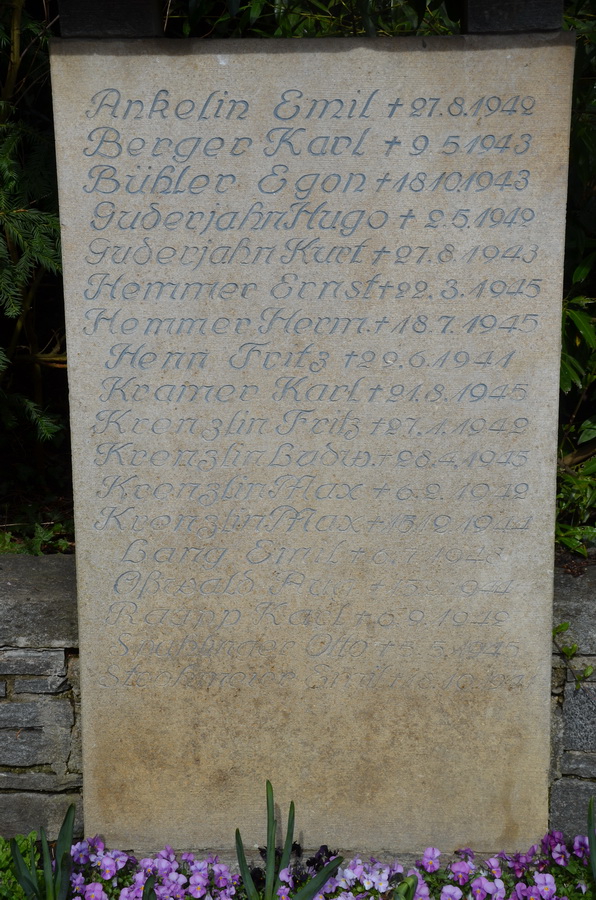 Ankelin Emil † 27.8.1942
Berger Karl † 9.5.1943
Bühler Egon † 18.10.1943
Guderjahn Hugo † 2.5.1942
Guderjahn Kurt † 27.8.1943
Hemmer Ernst † 22.3.1945
Hemmer Herm. † 18.7.1945
Henn Fritz † 29.6.1941
Kramer Karl † 21.3.1945
Krenzlin Fritz † 27.1.1942
Krenzlin Ludw. † 28.4.1945
Krenzlin Max † 6.2.1942
Kronzlin Max † 15.12.1944
Lang Emil † 6.7.1943
Oßwald
Raupp Karl † 6.2.1942
Otto